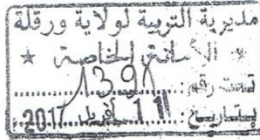 مديرية التربية لولاية ورقلة
* الأمانة الخاصة *
تحت رقم 1391
بتاريخ 11 أفريل 2017